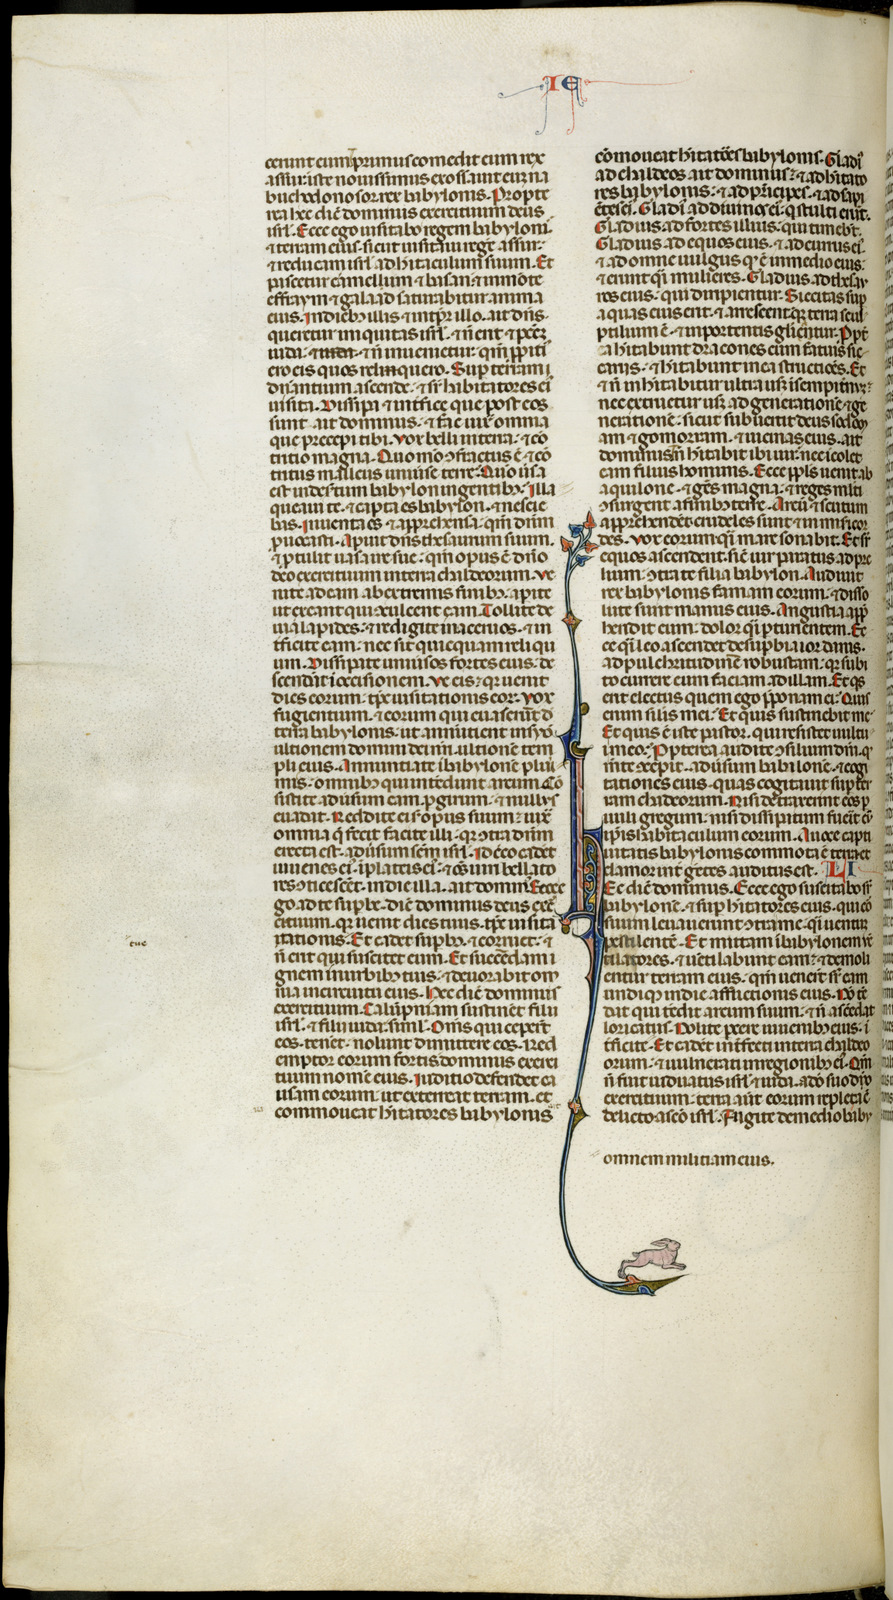 IE
cerunt eum primus comedit eum rex
assur: iste novissimus exossavit eum na
buchodonosor rex babylonis. Propte
rea hec dic̄ dominus exercituum deus
isrl̄. Ecce ego visitabo regem babyloni
⁊ terram eius: sicut visitavi regē assur:
⁊ reducam isrl̄ ad habitaculum suum. Et
pascetur carmellum ⁊ basan: ⁊ in monte
effraym ⁊ galaad saturabitur anima
eius. In dieb⁊ illis ⁊ in tp̄r illo. ait dn̄s.
queretur iniquitas isrl̄. ⁊ n̄ erit ⁊ pc̄cm̄
iuda. ⁊ n̄ invenietur: qm̄ ꝓpiti
ero eis quos relinquero. Sup terram
dn̄antium ascende. ⁊ sr̄ habitatores ei
visita. Dissipa ⁊ int̄fice que post eos
sunt ait dominus: ⁊ fac iux̄ omnia
que precepi tibi. Vox belli in terra: ⁊ cō
tritio magna. Quomō ɔfractus ē ⁊ cō
tritus malleus univ̄se terre. Quō v̄sa
est in des̄tum babylon in gentib⁊. Illa
queavi te. ⁊ capta es babylon. ⁊ nescie
bas. Inventa es ⁊ apprehensa: qm̄ dn̄m
ꝓvocasti. Apuit dn̄s thesaurum suum.
⁊ ꝓtulit vasa ire sue: qm̄ opus ē dn̄o
deo exercituum in terra chaldeorum. Ve
nite ad eam ab extremis finib⁊. apite
ut exeant qui ɔculcent eam. Tollite de
via lapides. ⁊ redigite in acervos. ⁊ in
t̄ficite eam: nec sit quicquam reliqu
um. Dissipate univ̄sos fortes eius: de
scendūt ī occisionem. Ve eis: qr̄ venit
dies eorum. tp̄s visitationis eor⁊. Vox
fugientium. ⁊ eorum qui evaserūt d̄
terra babylonis: ut annūtient in syō
ultionem domini dei nr̄i. ultionē tem
pli eius. Annuntiate ī babylonē pluri
mis: omnib⁊ qui intēdunt arcum. Cō
sistite adv̄sum eam ꝑ girum: ⁊ nullus
evadat. Reddite ei sc̄ opus suum: iux̄
omnia q̄ fecit facite illi: qr̄ ɔtra dn̄m
erecta est. adv̄sum sc̄m isrl̄. Idc̄co cadēt
iuvenes ei⁊ ī plateis ei⁊: ⁊ om̄s viri bellato
res ɔticescēt. in die illa. ait domin⁊ Ecce
go ad te supbe. dic̄ dominus deus exer̄
cituum. qr̄ venit dies tuus. tp̄s visita
tationis. Et cadet supb⁊. ⁊ corruet: ⁊
n̄ erit qui suscitet eum. Et succēdam i
gnem in urbib⁊ tuis: ⁊ devorabit om
nia in circuitu eius. Hec dic̄ dominus
exercituum. Calūpniam sustinet filii
isrl̄. ⁊ filii iuda: siml̄. Om̄s qui cepert̄
eos. tenēt: nolunt dimittere eos. Red
emptor eorum fortis dominus exerci
tuum nom̄ eius. Iuditio defendet ca
usam eorum: ut exterreat terram. et
commoveat h̄itatores babylonis
tue
cōmoveat h̄itatōes babylonis. Gladi⁊
ad chaldeos ait dominus: ⁊ ad habitato
res babylonis: ⁊ ad pricipes. ⁊ ad sapi
ētes ei⁊. Gladi⁊ ad divinos ei⁊. q̄ stulti erūt.
Gladius ad fortes illius. qui timebt̄.
Gladius ad equos eius. ⁊ ad currus ei⁊
⁊ ad omne vulgus qd̄ ē in medio eius:
⁊ erunt qi̅ mulieres. Gladius ad thesau
ros eius: qui diripientur. Siccitas sup
aquas eius erit. ⁊ arescent: qr̄ terra scul
ptilium ē. ⁊ in portentis gliēntur. Ppt̄
ea h̄itabunt dracones cum fatuis fic
cariis. ⁊ h̄itabunt in ea structiōes. Et
⁊ n̄ inhabitabitur ultra usq⁊ ī sempitn̄u⁊.
nec extruetur usq⁊ ad generationē ⁊ ge
nerationē: sicut subv̄tit deus sodom
am ⁊ gomorram. ⁊ vicinas eius. ait
dominus. n̄ habitabit ibi vir: nec icolet
eam filius hominis. Ecce ppl̄s venit ab
aquilone. ⁊ gēs magna: ⁊ reges ml̄ti
ɔsurgent a finib⁊ terre. Arcū ⁊ scutum
apprehendēt: crudeles sunt ⁊ inmisicor
des. Vox eorum qi̅ mare sonabit. Et sr̄
equos ascendent. sic̄ vir paratus ad pre
lium. ɔtra te filia babylon. Audivit
rex babylonis famam eorum: ⁊ disso
lute sunt manus eius. Angustia app̄
hendit eum: dolor qi̅ pturientem. Ec
ce qi̅ leo ascendet de supbia iordanis.
ad pulchritudinē robustam: qr̄ subi
to currere eum faciam ad illam. Et q̄s
erit electus quem ego p̄ponam ei: Quis
enim similis mei: Et quis sustinebit me:
Et quis ē iste pastor. qui resistet vultui
meo: Pp̄terea audite ɔsilium dn̄i. qd̄
m̄te ɔcepit. adv̄sum babilonē. ⁊ cogi
tationes eius. quas cogitavit sup ter
ram chaldeorum. Nisi detraxerint eos p
vuli gregum: nisi dissipatum fuerit cū
ipīs habitaculum eorum. A voce capti
vitatis babylonis commota ē terra et
clamor int̄ gētes auditus est. LI
Ec dic̄ dominus. Ecce ego suscitabo sr̄
babylonē. ⁊ sup h̄itatores eius. qui cor
suum levaverunt ɔtra me. qi̅ ventū
pestilentē. Et mittam ī babylonem vē
tilatores. ⁊ vētilabunt eam: ⁊ demoli
entur terram eius. qm̄ vener̄t sr̄ eam
undiq⁊ in die afflictionis eius. Nō tē
dat qui tēdit arcum suum: ⁊ n̄ ascēdat
loricatus. Nolite pcere iuvenib⁊ eius: ī
t̄ficite. Et cadēt int̄fecti in terra chaldeo
orum: ⁊ vulnerati in regionib⁊ ei⁊. Qm̄
n̄ fuit viduatus isrl̄ ⁊ iuda. a dō suo dn̄o
exercituum: terra aūt eorum repleta ē
delicto a sc̄o isrl̄. Fugite de medio baby
omnem militiam eius.